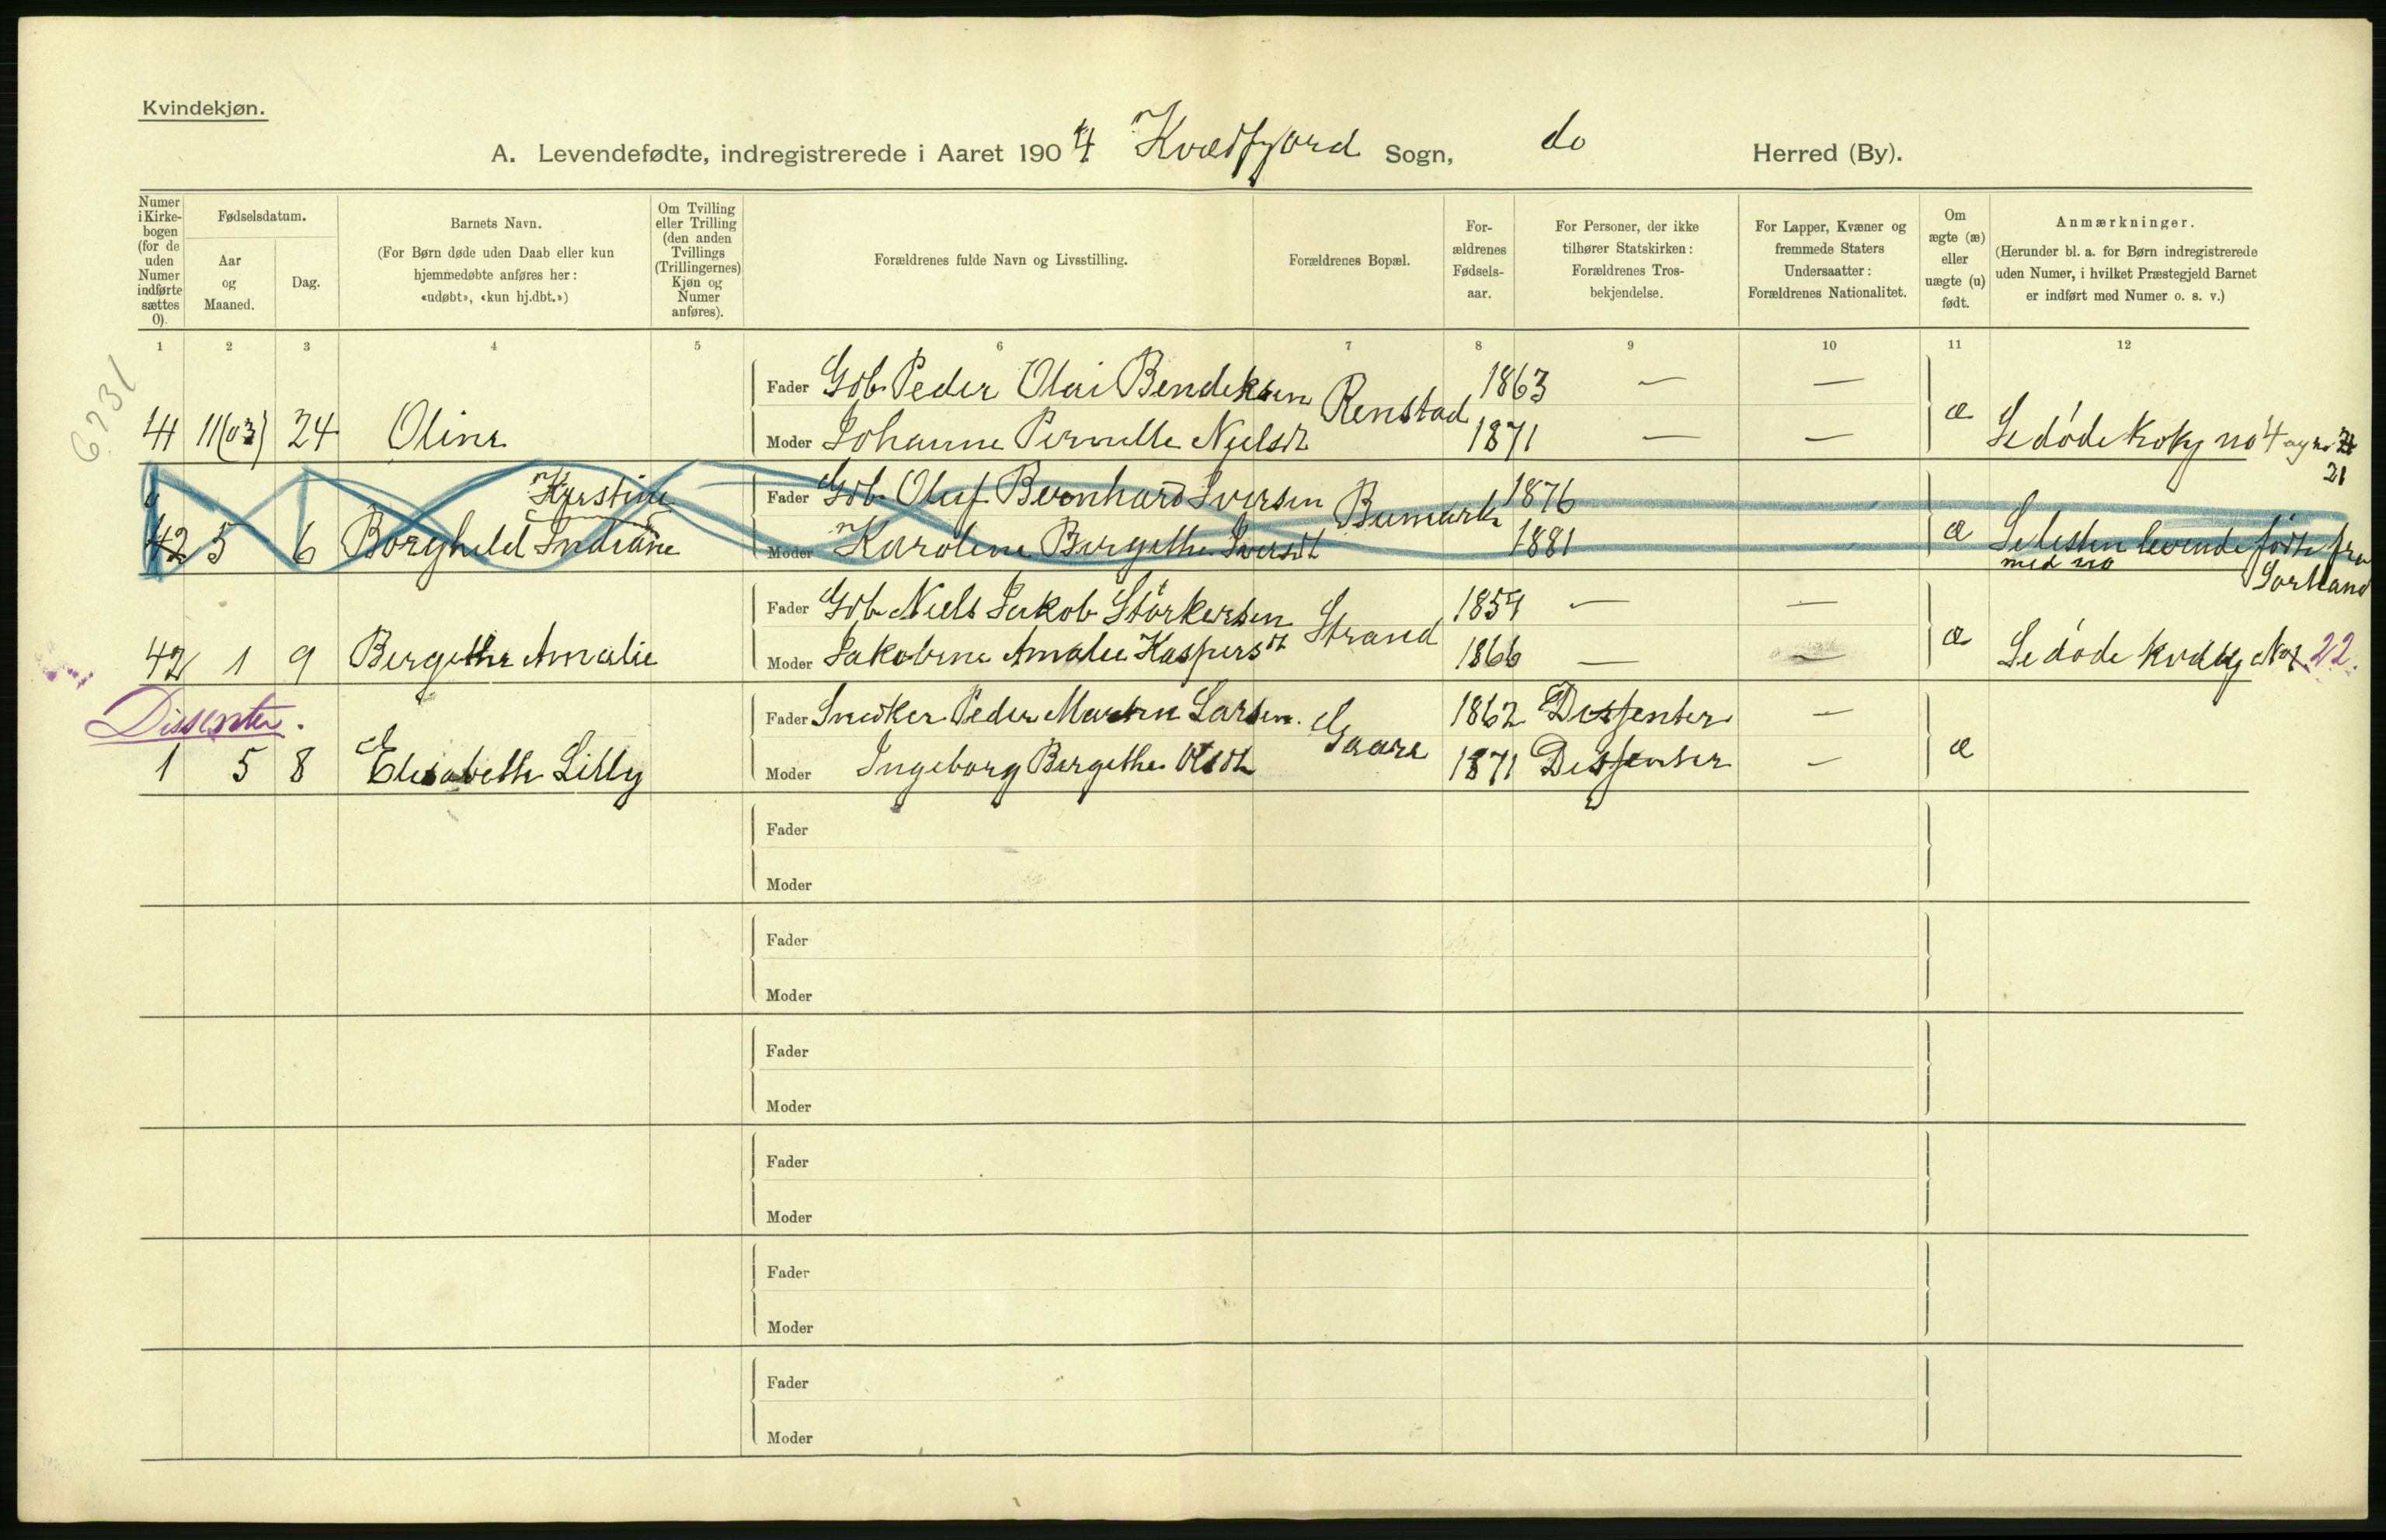 Kvindekjøn.
A. Levendefødte, indregistrerede i Aaret 1904 Kvædfjord Sogn, do Herred (By).
Numer i Kirkebogen (for de uden Numer indførte sættes 0).
Fødselsdatum.
Aar og Maaned.
Dag.
Barnets Navn.
(For Børn døde uden Daab eller kun hjemmedøbte anføres her: «udøbt», «kun hj.dbt.»)
Om Tvilling eller Trilling (den anden Tvillings (Trillingernes) Kjøn og Numer anføres).
Forældrenes fulde Navn og Livsstilling.
Forældrenes Bopæl.
Forældrenes Fødselsaar.
For Personer, der ikke tilhører Statskirken: Forældrenes Trosbekjendelse.
For Lapper, Kvæner og fremmede Staters Undersaatter: Forældrenes Nationalitet.
Om ægte (æ) eller uægte (u) født.
Anmærkninger.
(Herunder bl. a. for Børn indregistrerede uden Numer, i hvilket Præstegjeld Barnet er indført med Numer o. s. v.)
1 2 3 4 5 6 7 8 9 10 11 12
6731
Fader Gdb Peder Olai Bendiksen Renstad 1863 — —
41 11(03) 24 Oline Moder Johanne Pernille Nielsdt 1871 — — æ Se døde koky no 4 og no
21
0 Kristine Fader Gdb Oluf Bernhard Iversen Bumark 1876
42 5 6 Borghild Indiane Moder Karoline Bergithe Iversdt 1881 æ Se listen levende fødte fra
med no Sortland
Fader Gdb Niels Jakob Storkersen Strand 1859 — —
42 1 9 Bergithe Amalie Moder Jakobine Amalie Kaspersdt 1866 — — æ Se døde No 22.
Dissenter.
Fader Snedker Peder Martin Larsen. Gaare 1862 Dissenter —
1 5 8 Elisabeth Lilly Moder Ingeborg Bergithe Olsdt 1871 Dissenter — æ
Fader
Moder
Fader
Moder
Fader
Moder
Fader
Moder
Fader
Moder
Fader
Moder